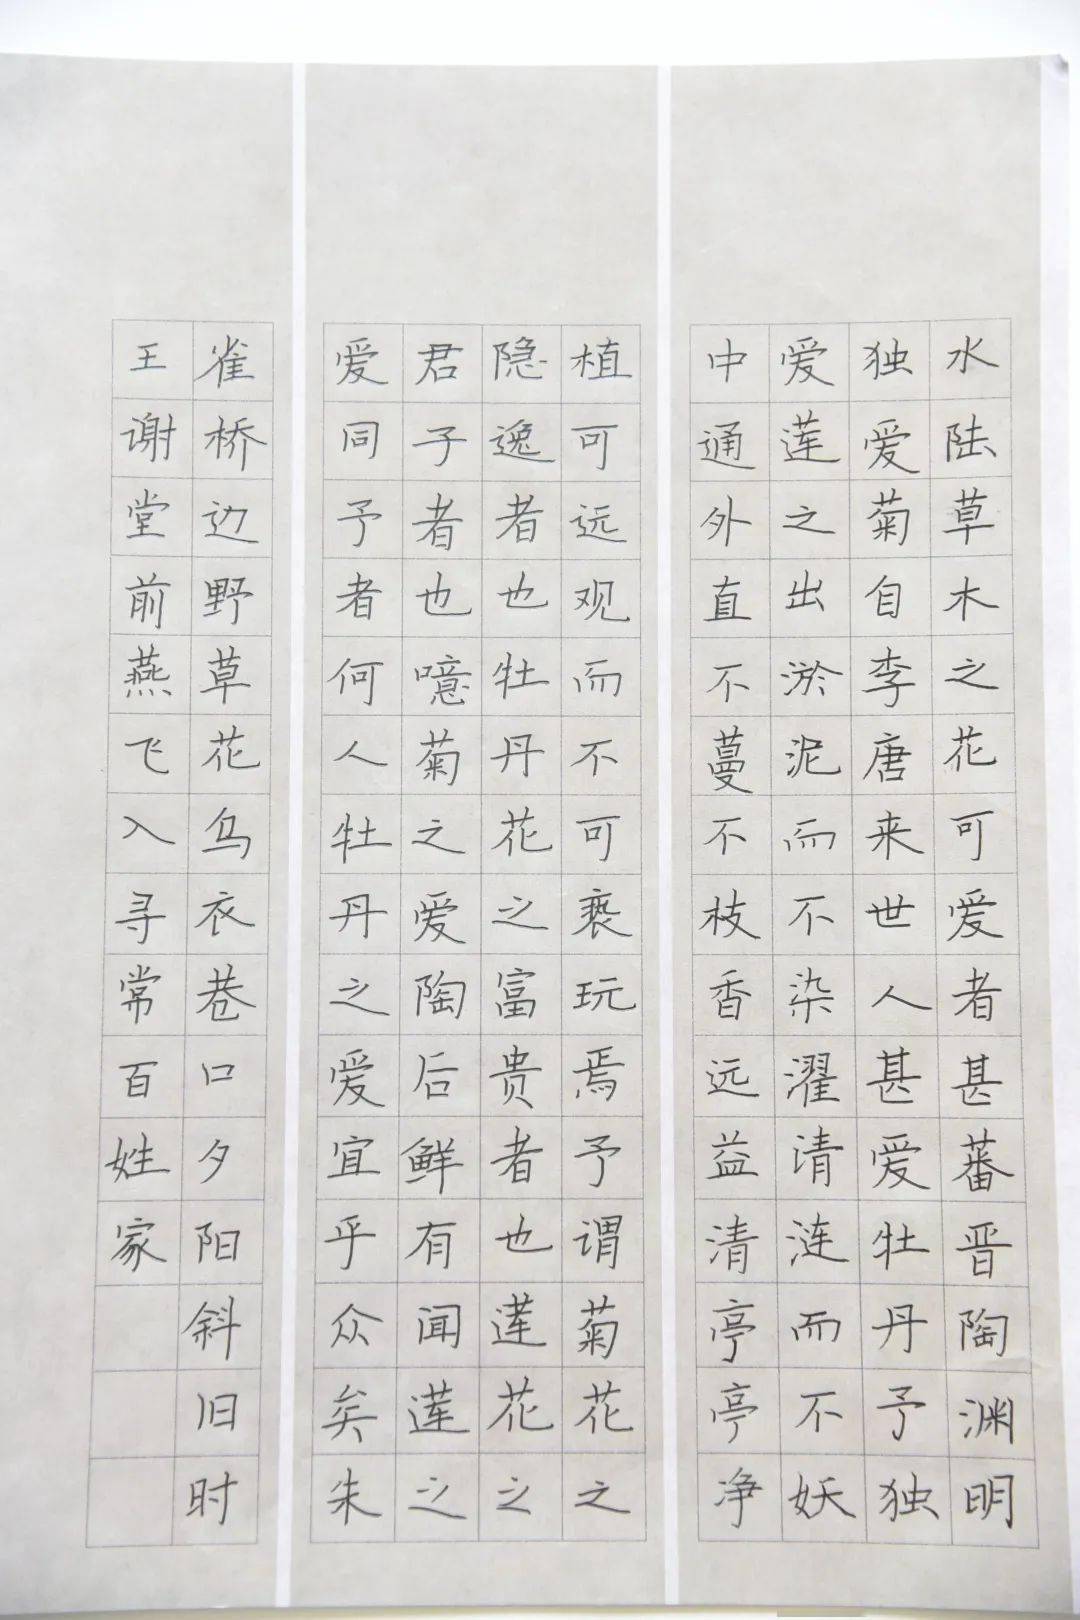 水陆草木之花可爱者甚蕃晋陶渊明
独爱菊自李唐来世人甚爱牡丹予独
爱莲之出淤泥而不染濯清涟而不妖
中通外直不蔓不枝香远益清亭亭净
植可远观而不可亵玩焉予谓菊花之
隐逸者也牡丹花之富贵者也莲花之
君子者也噫菊之爱陶后鲜有闻莲之
爱同予者何人牡丹之爱宜乎众矣朱
雀桥边野草花乌衣巷口夕阳斜旧时
王谢堂前燕飞入寻常百姓家